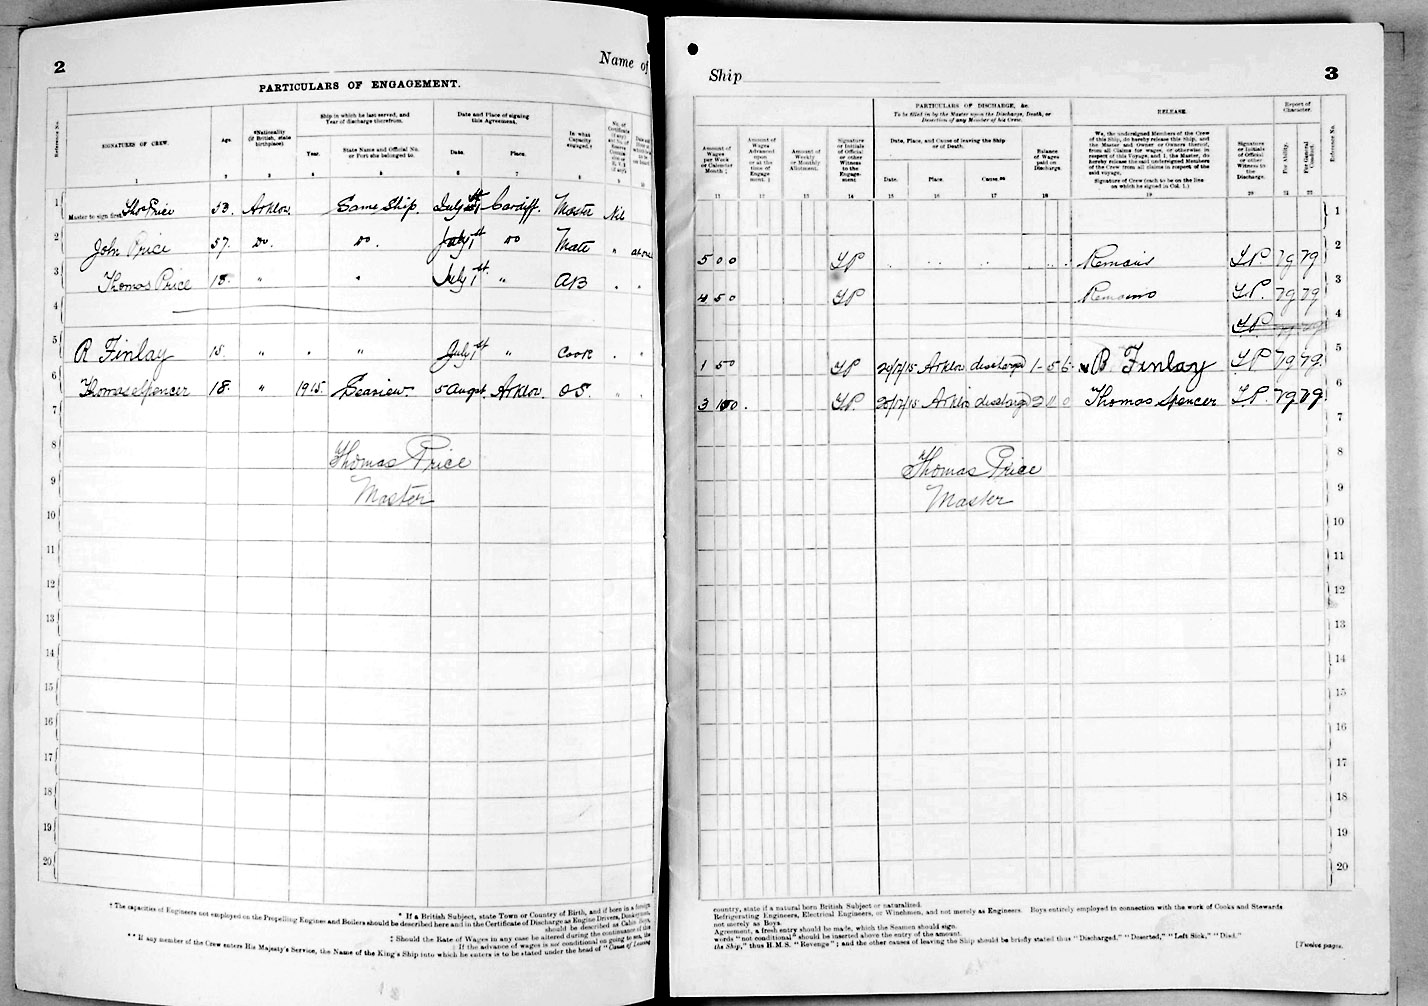 2
Name of
PARTICULARS OF ENGAGEMENT.
Reference No.
SIGNATURES OF CREW.
Age.
*Nationality (if British, state birthplace).
Ship in which he last served, and Year of discharge therefrom.
Year.
State Name and Official No. or Port she belonged to.
Date and Place of signing this Agreement.
Date.
Place.
In what Capacity engaged.†
No. of Certificate
1 2 3 4 5 6 7 8 9 10
1 Master to sign first Thos Price 53. Arklow. Same Ship. July 1st Cardiff. Master Nil
2 John Price 57. Do. Do. July 1st Do Mate " above
3 Thomas Price 18. " " July 1st " AB " "
4
5 R Finlay 15. " " " July 1st " Cook " "
6 Thomas Spencer 18. " 1915. Seaview. 5 Augst. Arklow. OS. " "
7
8 Thomas Price
9 Master
10
11
12
13
14
15
16
17
18
19
20
† The capacities of Engineers not employed on the Propelling Engines and Boilers should be described here and in the Certificate of Discharge as Engine Drivers, Donkeymen,
* If a British Subject, state Town or Country of Birth, and if born in a foreign
should be described as Cabin Boys,
‡ Should the Rate of Wages in any case be altered during the continuance of the
‡ If the advance of wages is not conditional on going to sea, the
** If any member of the Crew enters His Majesty's Service, the Name of the King's Ship into which he enters is to be stated under the head of "Cause of Leaving
Ship
3
Amount of Wages per Week or Calendar Month ‡
Amount of Wages Advanced upon or at the time of Engagement.‡
Amount of Weekly or Monthly Allotment.
Signature or Initials of Official or other Witness to the Engagement
PARTICULARS OF DISCHARGE, &c.
To be filled in by the Master upon the Discharge, Death, or Desertion of any Member of his Crew.
Date, Place, and Cause of leaving the Ship or of Death.
Date.
Place.
Cause.**
Balance of Wages paid on Discharge.
RELEASE.
We, the undersigned Members of the Crew of this Ship, do hereby release this Ship, and the Master and Owner or Owners thereof, from all Claims for wages, or otherwise in respect of this Voyage; and I, the Master, do hereby release the said undersigned Members of the Crew from all claims in respect of the said voyage.
Signature of Crew (each to be on the line on which he signed in Col. 1.)
Signature or Initials of Official or other Witness to the Discharge.
Report of Character.
For Ability.
For General Conduct.
Reference No.
11 12 13 14 15 16 17 18 19 20 21 22
1
5 0 0 TP Remains T.P. VG VG 2
4 5 0 TP Remains T.P. VG VG 3
T.P. VG VG 4
1 5 0 TP Arklow discharged 1-5 6 R Finlay T.P VG VG. 5
3 TP. Arklow discharged 2 11 0 Thomas Spencer T.P. VG VG. 6
7
Thomas Price 8
Master 9
10
11
12
13
14
15
16
17
18
19
20
country, state if a natural born British Subject or naturalized.
Refrigerating Engineers, Electrical Engineers, or Winchmen, and not merely as Engineers. Boys entirely employed in connection with the work of Cooks and Stewards
not merely as Boys.
Agreement, a fresh entry should be made, which the Seamen should sign.
words "not conditional" should be inserted above the entry of the amount.
the Ship," thus H.M.S. "Revenge"; and the other causes of leaving the Ship should be briefly stated thus "Discharged," "Deserted," "Left Sick," "Died."
[Twelve pages.